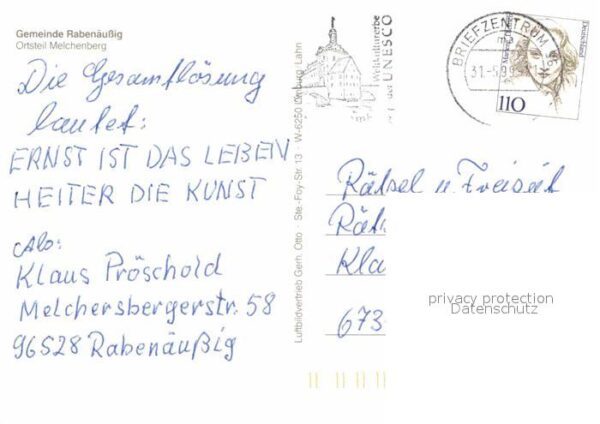 Gemeinde Rabenäußig
Ortsteil Melchenberg
Die Gesamtlösung
lautet:
ERNST IST DAS LEBEN
HEITER DIE KUNST
Abs:
Klaus Pröschold
Melchersbergerstr. 58
96528 Rabenäußig
Luftbildvertrieb Gerh. Otto · Ste.-Foy-Str. 13 · W-6250 Limburg · Lahn
Weltkulturerbe
der UNESCO
BRIEFZENTRUM 96
31.-5.99
Deutschland
110
Rätsel u. Freizeit
Rät
Kla
673
privacy protection
Datenschutz